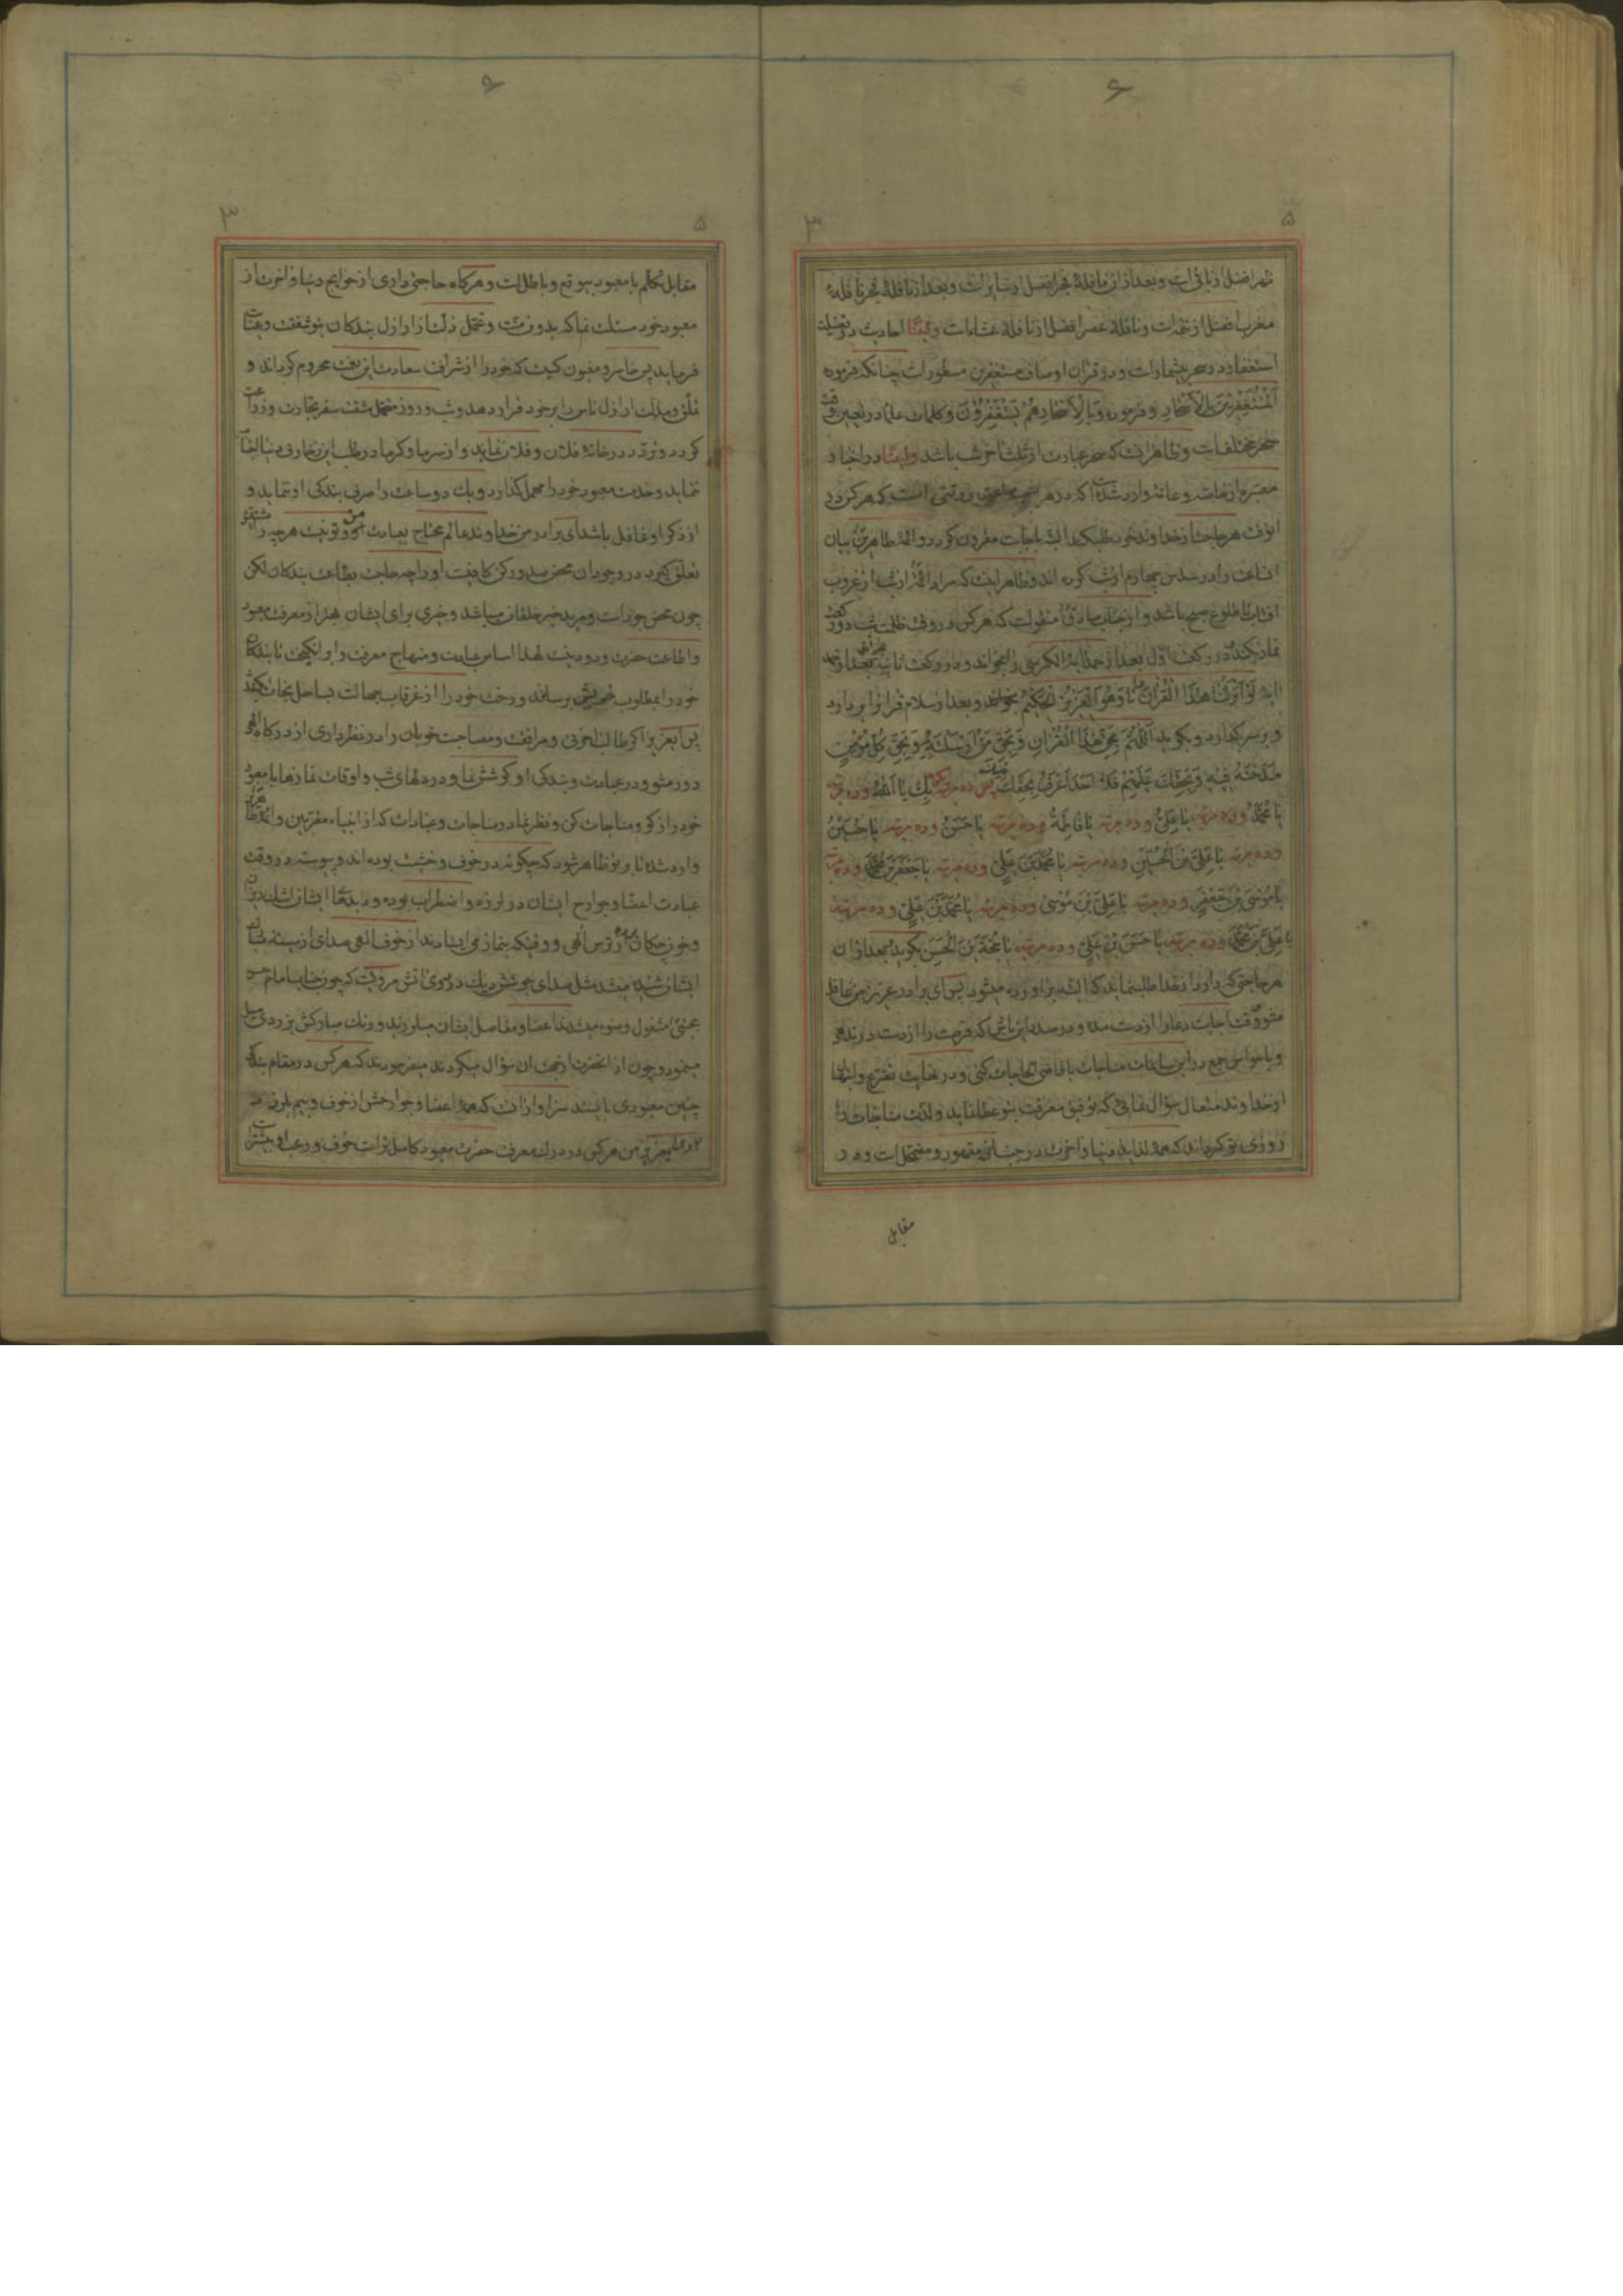 ۶
۵
۳
ظهر افضل از باقی است و بعد از ان نافلهٔ فجر افضل از سایر است و بعد از نافلهٔ فجر نافلهٔ
مغرب افضل از تتمه است و نافلهٔ عصر افضل از نافلهٔ عشاء است وایضًا احادیث در فضیلت
استغفار در سحر بیشمار است و در قران اوصاف مستغفرین مسطور است چنانکه فرموده
اَلْمُسْتَغْفِرینَ بِالْاَسْحارِ و فرموده وَبِالْاَسْحارِهُمْ یَسْتَغْفِرُوْنَ و کلمات علما در تعیین وقت
سحر مختلف است و ظاهر انست که سحر عبارت از ثلث اخر شب باشد وایضًا در اخبار
معتبره از خاصه و عامّه وارد شده است که در هر شب وقتی است که هر کس در
انوقت هر حاجت از خداوند خود طلب کند البته باجابت مقرون کردد و ائمهٔ طاهرین بیان
انساعت را در سدس چهارم از شب کرده اند و ظاهر اینست که مراد از شب از غروب
افتاب تا طلوع صبح باشد و از جناب صادق منقولست که هر کس در وقت ظلمت شب دو رکعت
نماز بکند در رکعت اوّل بعد از حمد ایة الکرسی را بخواند و در رکعت ثانیه بعد از حمد
ایهٔ لَوْ اَنْزَلْنا هٰذَا الْقُرْآنَ تا وَهُوَ الْعَزیزُ الْحَکیمُ بخواند و بعد از سلام قران را بردارد
و بر سر گذارد و بگوید اَللّٰهُمَّ بِحَقِّ هٰذَا الْقُرْانِ وَبِحَقِّ مَنْ اَرْسَلْتَهُ وَبِحَقِّ کُلِّ مُؤْمِنٍ
مَدَحْتَهُ فیهِ وَبِحَقِّکَ عَلَیْهِمْ فَلا اَحَدَ اَعْرَفُ بِحَقِّکَ مِنْکَ پس ده مرتبه بگوید بِکَ یا اَللّٰهُ و ده مرتبه
یا مُحَمَّدُ و ده مرتبه یا عَلِیُّ و ده مرتبه یا فاطِمَةُ و ده مرتبه یا حَسَنُ و ده مرتبه یا حُسَیْنُ
و ده مرتبه یا عَلِیَّ بْنَ الْحُسَیْنِ و ده مرتبه یا مُحَمَّدَ بْنَ عَلِیٍّ و ده مرتبه یا جَعْفَرَ بْنَ مُحَمَّدٍ و ده مرتبه
یا مُوْسَی بْنَ جَعْفَرٍ و ده مرتبه یا عَلِیَّ بْنَ مُوْسی و ده مرتبه یا مُحَمَّدَ بْنَ عَلِیٍّ و ده مرتبه
یا عَلِیَّ بْنَ مُحَمَّدٍ و ده مرتبه یا حَسَنَ بْنَ عَلِیٍّ و ده مرتبه یا حُجَّةَ بْنَ الْحَسَنِ بگوید بعد از ان
هر حاجتی که دارد از خدا طلب نماید که البته براورده میشود پس ای برادر عزیز من غافل
مشو وقت اجابت دعا را از دست مده و در صدد این باش که فرصت را از دست ندهی
و با حواس جمع در این ساعات مناجات با قاضی الحاجات کنی و در نهایت تضرع وابتهال
از خداوند متعال سؤال نمائی که توفیق معرفت بتو عطا نماید و لذت مناجات را
روزی تو گرداند که همهٔ لذاید دنیا و اخرت در جنب ان مقهور و مضمحل است و در
مقابل
۶
۵
۳
مقابل تکلّم با معبود بیوقع و باطل است و هرگاه حاجتی داری از حوایج دنیا و اخرت از
معبود خود مسئلت نما که بدون منّت و تحمّل ذلّت از اراذل بندکان بتو شفقت و عنایت
فرماید پس خاسر و مغبون کیست که خود را از شرافت سعادت این نعمت محروم گرداند و
تملّق و مذلّت اراذل ناس را بر خود قرار دهد و شب و روز متحمّل مشقت سفر تجارت و زراعت
گردد و تردّد در خانهٔ فلان و فلان نماید و از سرما و گرما در طلب این زخارف دنیا التفات
ننماید و خدمت معبود خود را مهمل گذارد و یک دو ساعت را صرف بندکی او ننماید و
از ذکر او غافل باشد ای برادر من خداوند عالم محتاج بعبادت من و تو نیست هرچه
تعلق گیرد در وجود ان محض صدور کن کافیست او را چه حاجت بطاعت بندکان لکن
چون محض جود است و مرید خیر خلقان میباشد و خیری برای ایشان بهتر از معرفت معبود
و اطاعت حضرت ودود نیست لهذا اساس عبادت و منهاج معرفت را برانگیخت تا بندکان
خود را بمطلوب خویش برساند و رخت خود را از غرقاب جهالت بساحل نجات بکشد
پس ایعزیز اگر طالب خوبی و مرافقت و مصاحبت خوبان را در نظر داری از درکاه الهی
دور مشو و در عبادت و بندکی او کوشش نما و در دلهای شب و اوقات نمازها با معبود
خود راز گو و مناجات کن و نظر نما در مناجات و عبادات که از انبیاء مقربین و ائمهٔ طاهرین
وارد شده تا بر تو ظاهر شود که چگونه در خوف و خشیت بوده اند و پیوسته در وقت
عبادت اعضا و جوارح ایشان در لرزه و اضطراب بوده و دیدهٔ ایشان اشک ریزان
و خون چکان از ترس الهی و وقتیکه بنماز می ایستادند از خوف الهی صدای از سینهٔ
ایشان شنیده میشد مثل صدای جوشش دیک در روی اتش مرویست که چون جناب امام حسن
بوضو مشغول میشد اعضا و مفاصل ایشان میلرزید و رنک مبارکش بزردی میل
مینمود و چون از انحضرت از جهت ان سؤال میکردند میفرمودند که هرکس در مقام بندکی
چنین معبودی بایستد سزاوار انست که همهٔ اعضا و جوارحش از خوف و بیم بلرزد
ایعزیز من هرکس در درک معرفت حضرت معبود کامل تر است خوف و رعب او بیشتر